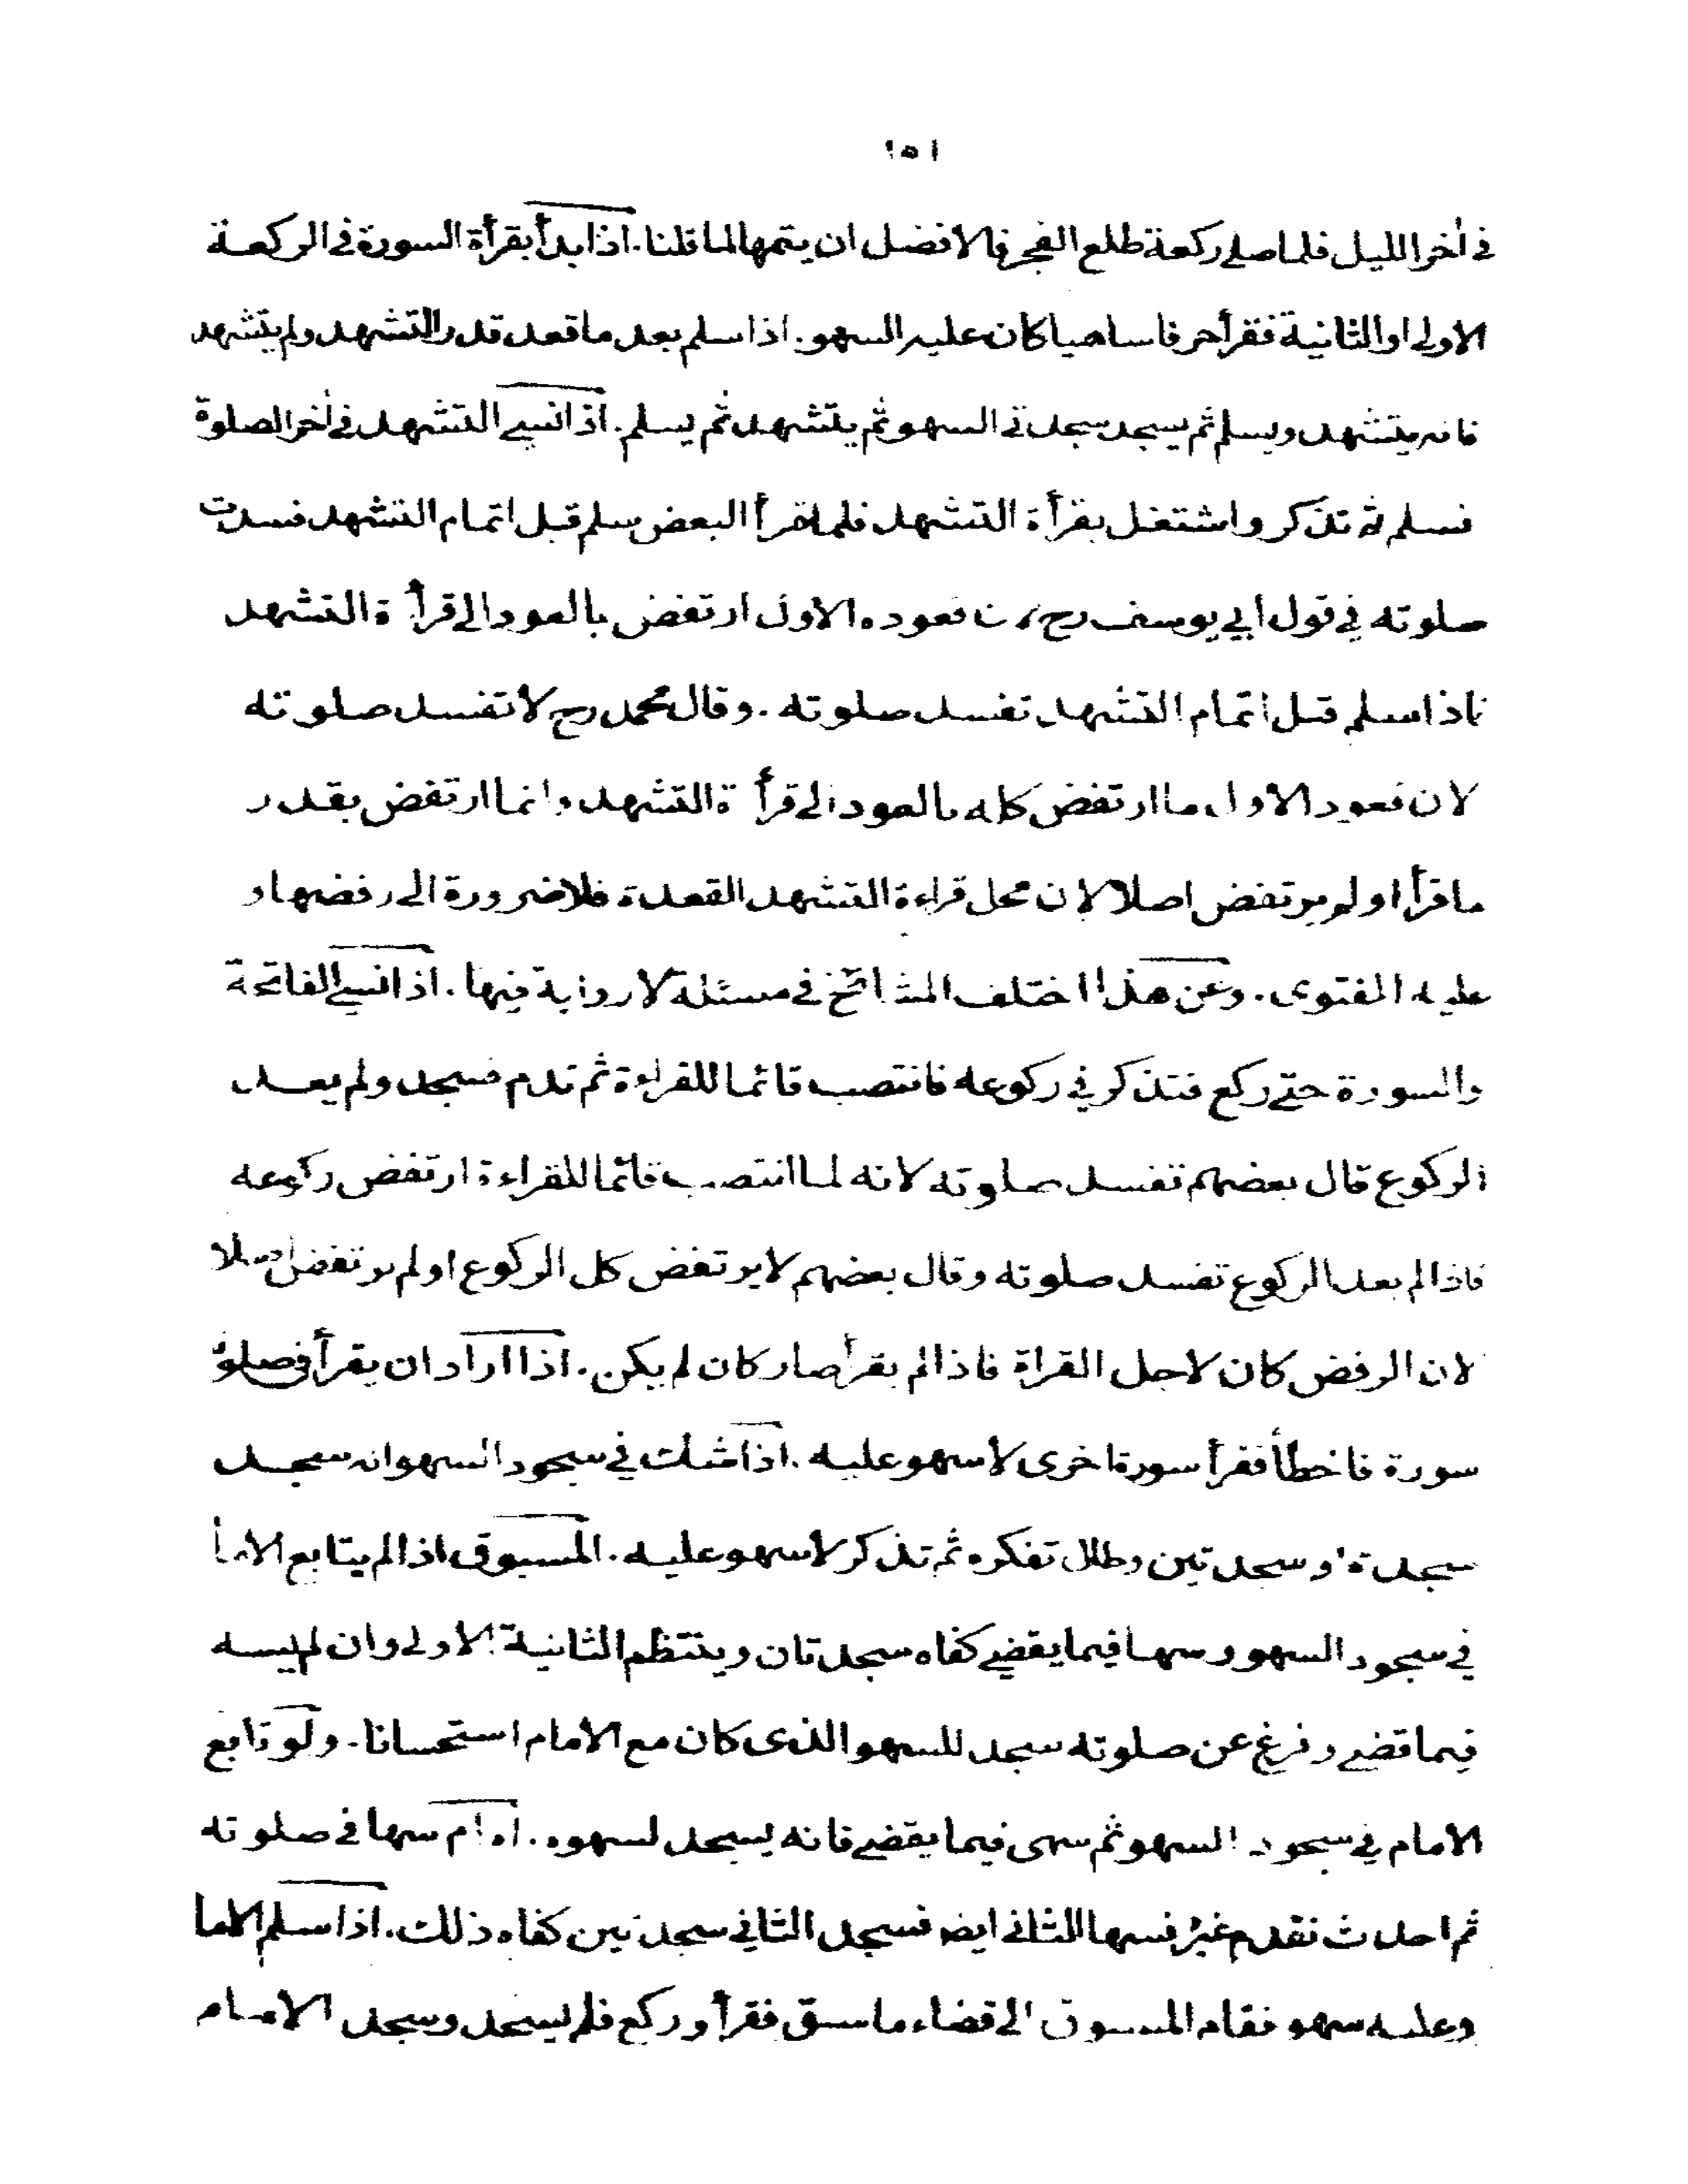 ١٥١
في أخر الليل فلما صلى ركعة طلع الفجر فالافضل ان يتمها لما قلنا. اذا بدأ بقرأة السورة في الركعة
الاولى او الثانية فقرأ حرفا ساهيا كان عليه السهو. اذا سلم بعد ما قعد قدر التشهد ولم يتشهد
فانه يتشهد ويسلم ثم يسجد سجدتي السهو ثم يتشهد ثم يسلم. اذا نسي التشهد في أخر الصلوة
فسلم ثم تذكر واشتغل بقرأة التشهد فلما قرأ البعض سلم قبل اتمام التشهد فسدت
صلوته في قول ابي يوسف رح لان قعوده الاول ارتفض بالعود الى قرأة التشهد
فاذا سلم قبل اتمام التشهد تفسد صلوته. وقال محمد رح لا تفسد صلوته
لان قعود الاول ما ارتفض كله بالعود الى قرأة التشهد وانما ارتفض بقدر
ما قرأ او لم يرتفض اصلا لان محل قراءة التشهد القعدة فلا ضرورة الى رفضها و
عليه الفتوى. وعن هذا اختلف المشائخ في مسئلة لا رواية فيها. اذا نسي الفاتحة
والسورة حتى ركع فتذكر في ركوعه فانتصب قائما للقراءة ثم ندم فسجد ولم يعد
الركوع قال بعضهم تفسد صلوته لانه لما انتصب قائما للقراءة ارتفض ركوعه
فاذا لم يعد الركوع تفسد صلوته وقال بعضهم لا يرتفض كل الركوع او لم يرتفض اصلا
لان الرفض كان لاجل القراة فاذا لم يقرأ صار كان لم يكن. اذا اراد ان يقرأ في صلوة
سورة فاخطأ فقرأ سورة اخرى لا سهو عليه. اذا شك في سجود السهو انه سجد
سجدة او سجدتين وطال تفكره ثم تذكر لا سهو عليه. المسبوق اذا لم يتابع الاما
في سجود السهو وسها فيما يقضي كفاه سجدتان وينتظم الثانية الاولى وان لم يسه
فيما قضى وفرغ عن صلوته سجد للسهو الذى كان مع الامام استحسانا. ولو تابع
الامام في سجود السهو ثم سهى فيما يقضي فانه يسجد لسهوه. امام سها في صلوته
ثم احدث فقدم غيره فسها الثاني ايضا فسجد الثاني سجدتين كفاه ذلك. اذا سلم الاما
وعليه سهو فقام المسبوق الى قضاء ما سبق فقرأ وركع فلم يسجد وسجد الامام